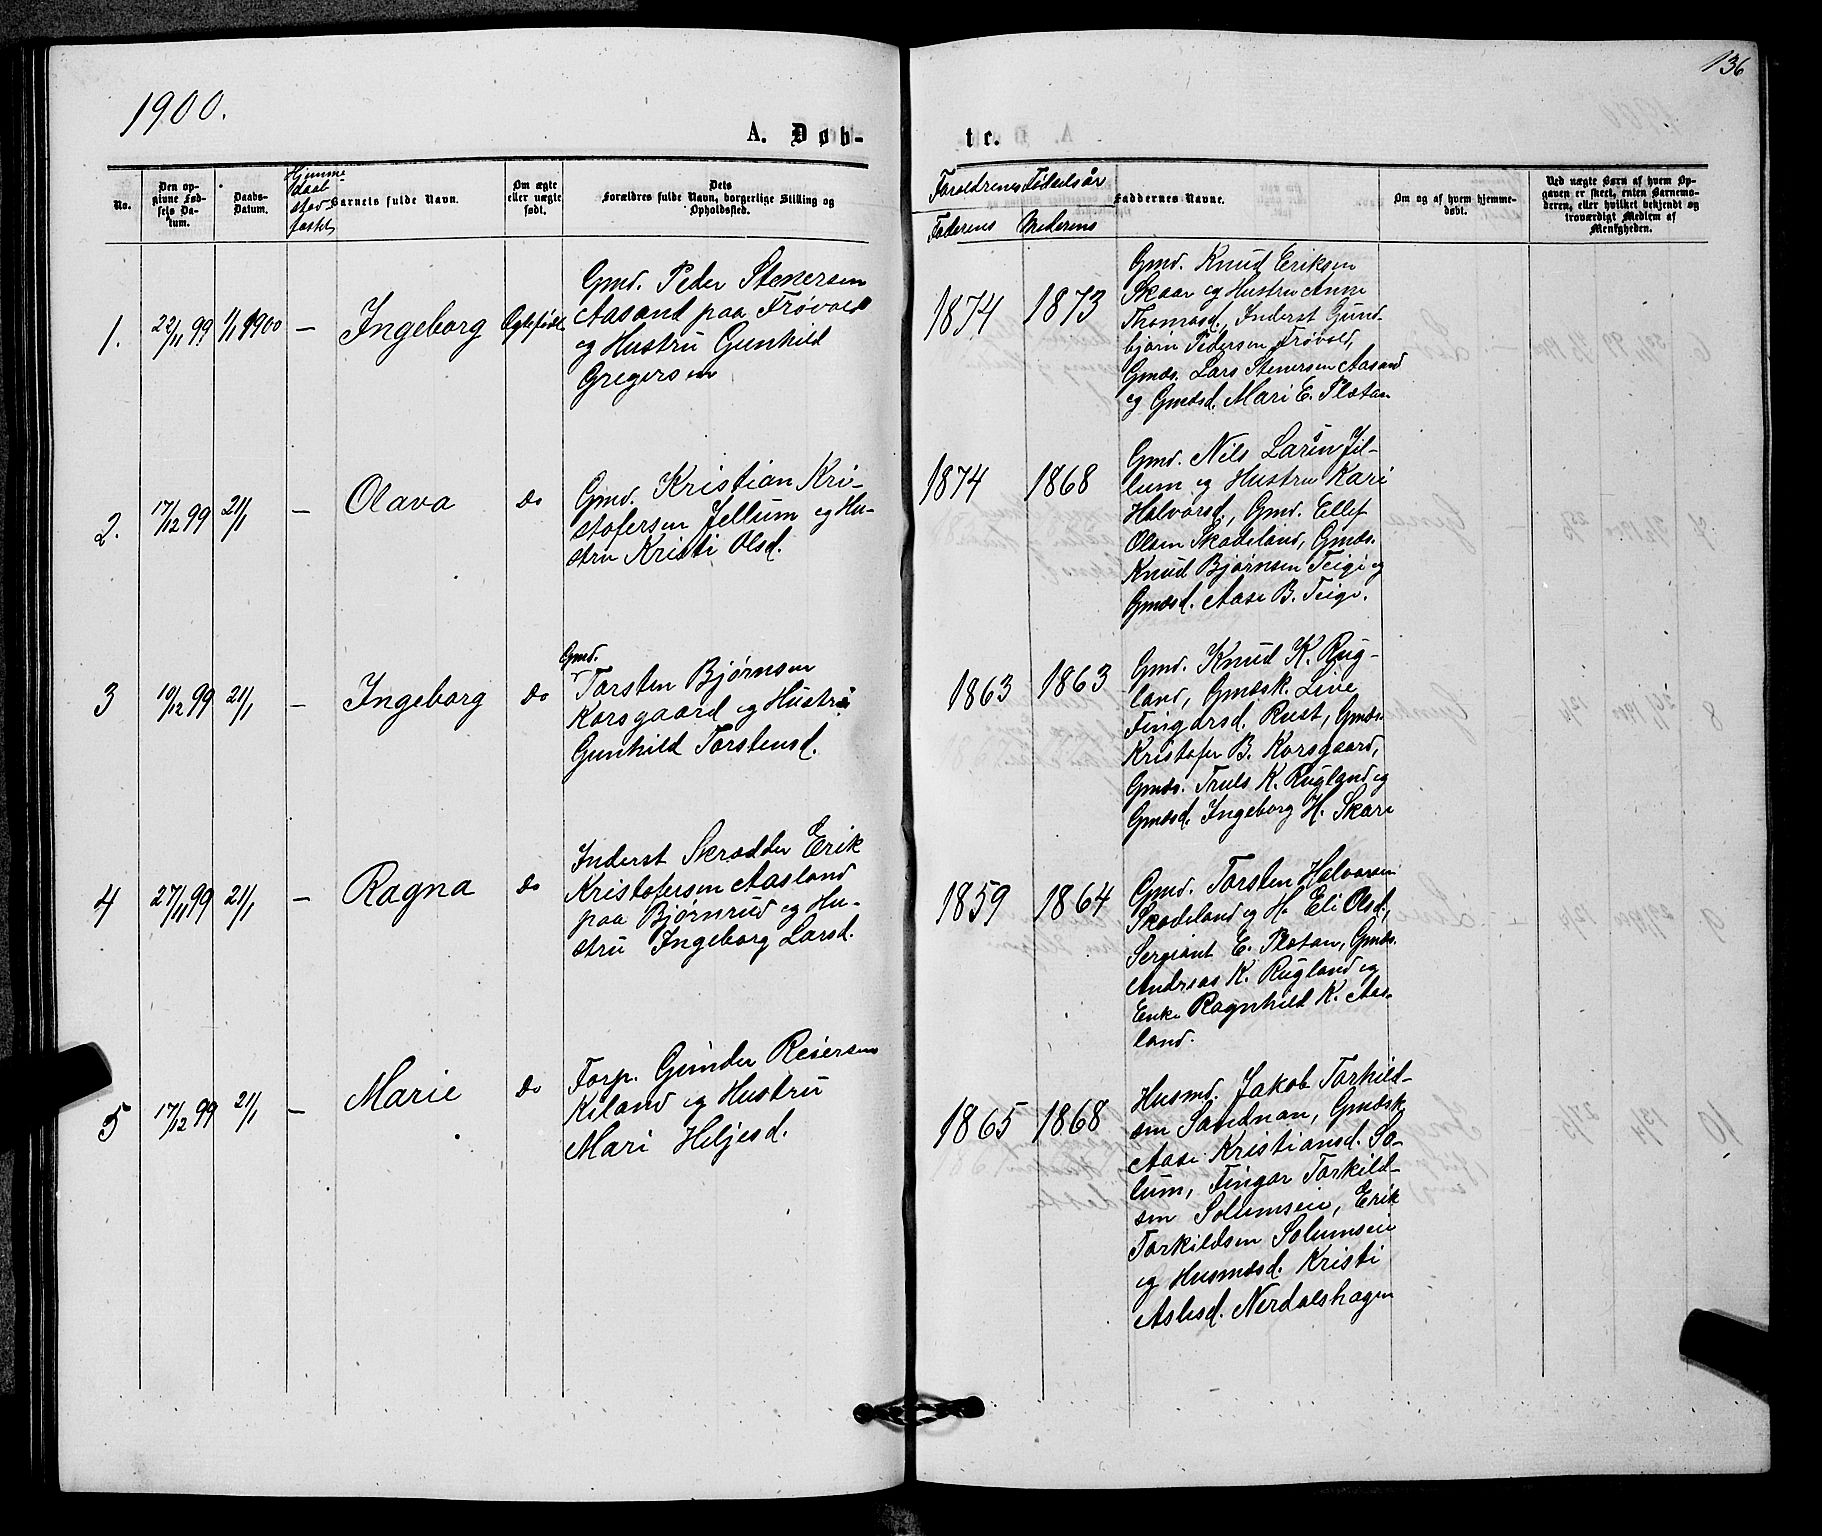 136
1900.
A. Døb-
te.
No.
Den op-
givne Fød-
sels Da-
tum.
Daabs-
Datum.
Hjemme
daab
stad-
fæstet
Barnets fulde Navn.
Om ægte
eller uægte
født.
Dets
Forældres fulde Navn, borgerlige Stilling og
Opholdssted.
Foreldrenes Fødselsår
Faderens
Moderens
Faddernes Navne.
Om og af hvem hjemme-
døbt.
Ved uægte Børn af hvem Op-
gaven er skeet, enten Barnemo-
deren, eller hvilket bekjendt og
troværdigt Medlem af
Menigheden.
1. 22/11 99 1/1 1900 — Ingeborg Ægtefødt
Gmd. Peder Stenersen
Aasand paa Frøvold
og Hustru Gunhild
Gregersen
1874 1873
Gmd. Knud Eriksen
Skaar og Hustru Anne
Thomasd., Inderst Gund-
bjørn Pedersen Frøvold,
Gmds. Lars Stenersen Aasand
og Gmdsd. Mari E. Pladan
2. 17/12 99 21/1 — Olava do
Gmd. Kristian Kri-
stofersen Jellum og Hu-
stru Kristi Olsd.
1874 1868
Gmd. Nils Larsen Jil-
lum og Hustru Kari
Halvorsd., Gmd. Ellef
Olsen Skadeland, Gmds.
Knud Bjørnsen Teige og
Gmdsd. Aase B. Teige.
3 10/12 99 21/1 — Ingeborg do
Gmd.
Torsten Bjørnsen
Korsgaard og Hustru
Gunhild Torstensd.
1863 1863
Gmd. Knud K. Rug-
land, Gmdsk. Live
Fingarsd. Rust, Gmds.
Kristofer B. Korsgaard,
Gmds. Truls K. Rugland og
Gmdsd. Ingeborg H. Skare
4 27/11 99 21/1 — Ragna do
Inderst Skrædder Erik
Kristofersen Aasland
paa Bjørnrud og Hu-
stru Ingeborg Larsd.
1859 1864
Gmd. Torsten Halvorsen
Skadeland og H. Eli Olsd.,
Sergiant E. Pladan, Gmds.
Andreas K. Rugland og
Enke Ragnhild K. Aas-
land.
5 17/12 99 21/1 — Marie do
Forp. Gunder Reiersen
Kiland og Hustru
Mari Heljesd.
1865 1868
Husmd. Jakob Torkild-
sen Sandnan, Gmdsk.
Aase Kristiansd. So-
lum, Fingar Torkild-
sen Solumseie, Erik
Torkildsen Solumseie
og Husmdsd. Kristi
Aslesd. Nerdalshagen